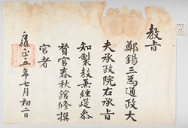 教旨
鄭錫三爲通政大
夫承政院右承旨
知製敎兼經筵叅
贊官春秋館修撰
官者
雍正五年七月初二